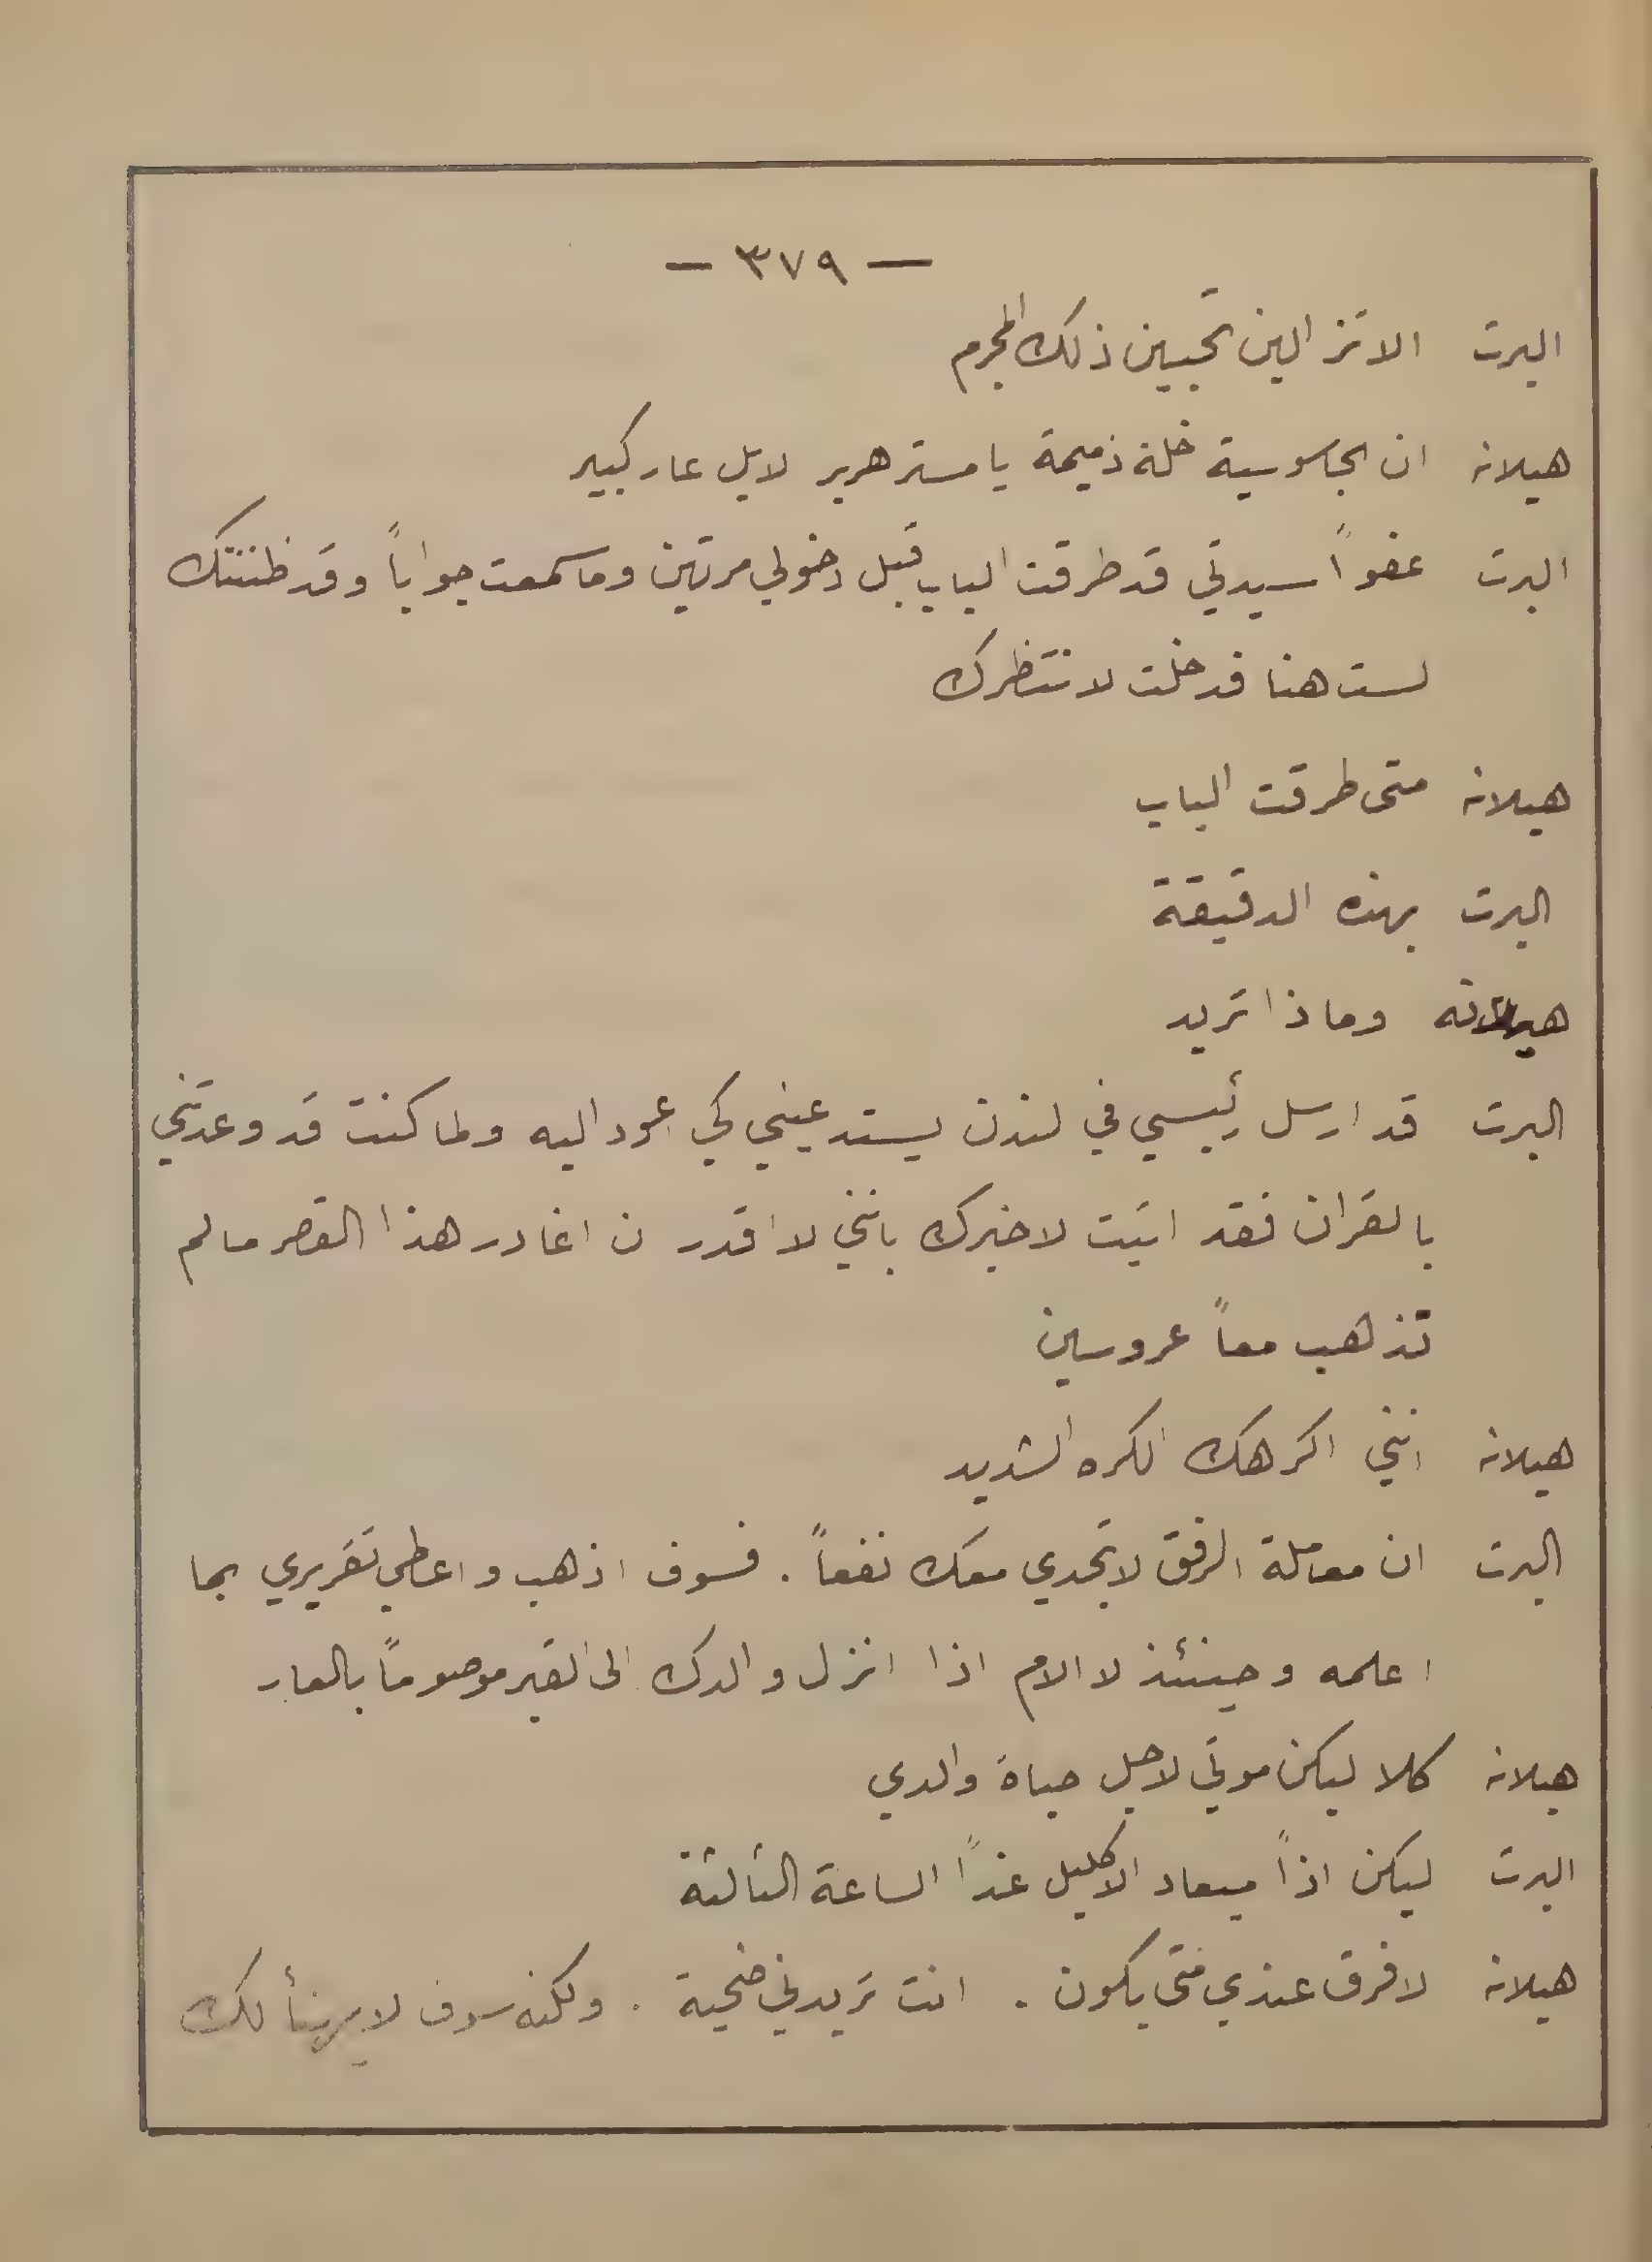 — ٣٧٩ —
البرت الا تزالين تحبين ذلك المجرم
هيلانه ان الجاسوسية خلة ذميمة يا مستر هرير لا بل عار كبير
البرت عفواً سيدتي قد طرقت الباب قبل دخولي مرتين وما سمعت جواباً وقد ظننتك
لست هنا فدخلت لانتظرك
هيلانه متى طرقت الباب
البرت بهذه الدقيقة
هيلانه وماذا تريد
البرت قد ارسل رئيسي في لندن يستدعيني كي اعود اليه ولما كنت قد وعدتني
بالقران فقد اتيت لاخبرك بانني لا اقدر ن اغادر هذا القصر مالم
تذهب معاً عروسين
هيلانه انني اكرهك الكره الشديد
البرت ان معاملة الرفق لا تجدي معك نفعاً . فسوف اذهب واعطي تقريري بما
اعلمه وحينئذ لا الام اذا انزل والدك الى القبر موصوماً بالعار
هيلانه كلا ليكن موتي لاجل حياة والدي
البرت ليكن اذاً ميعاد الاكليل غداً الساعة الثالثة
هيلانه لا فرق عندي متى يكون . انت تريدني ضحية . ولكنه سوف لا يهنأ لك